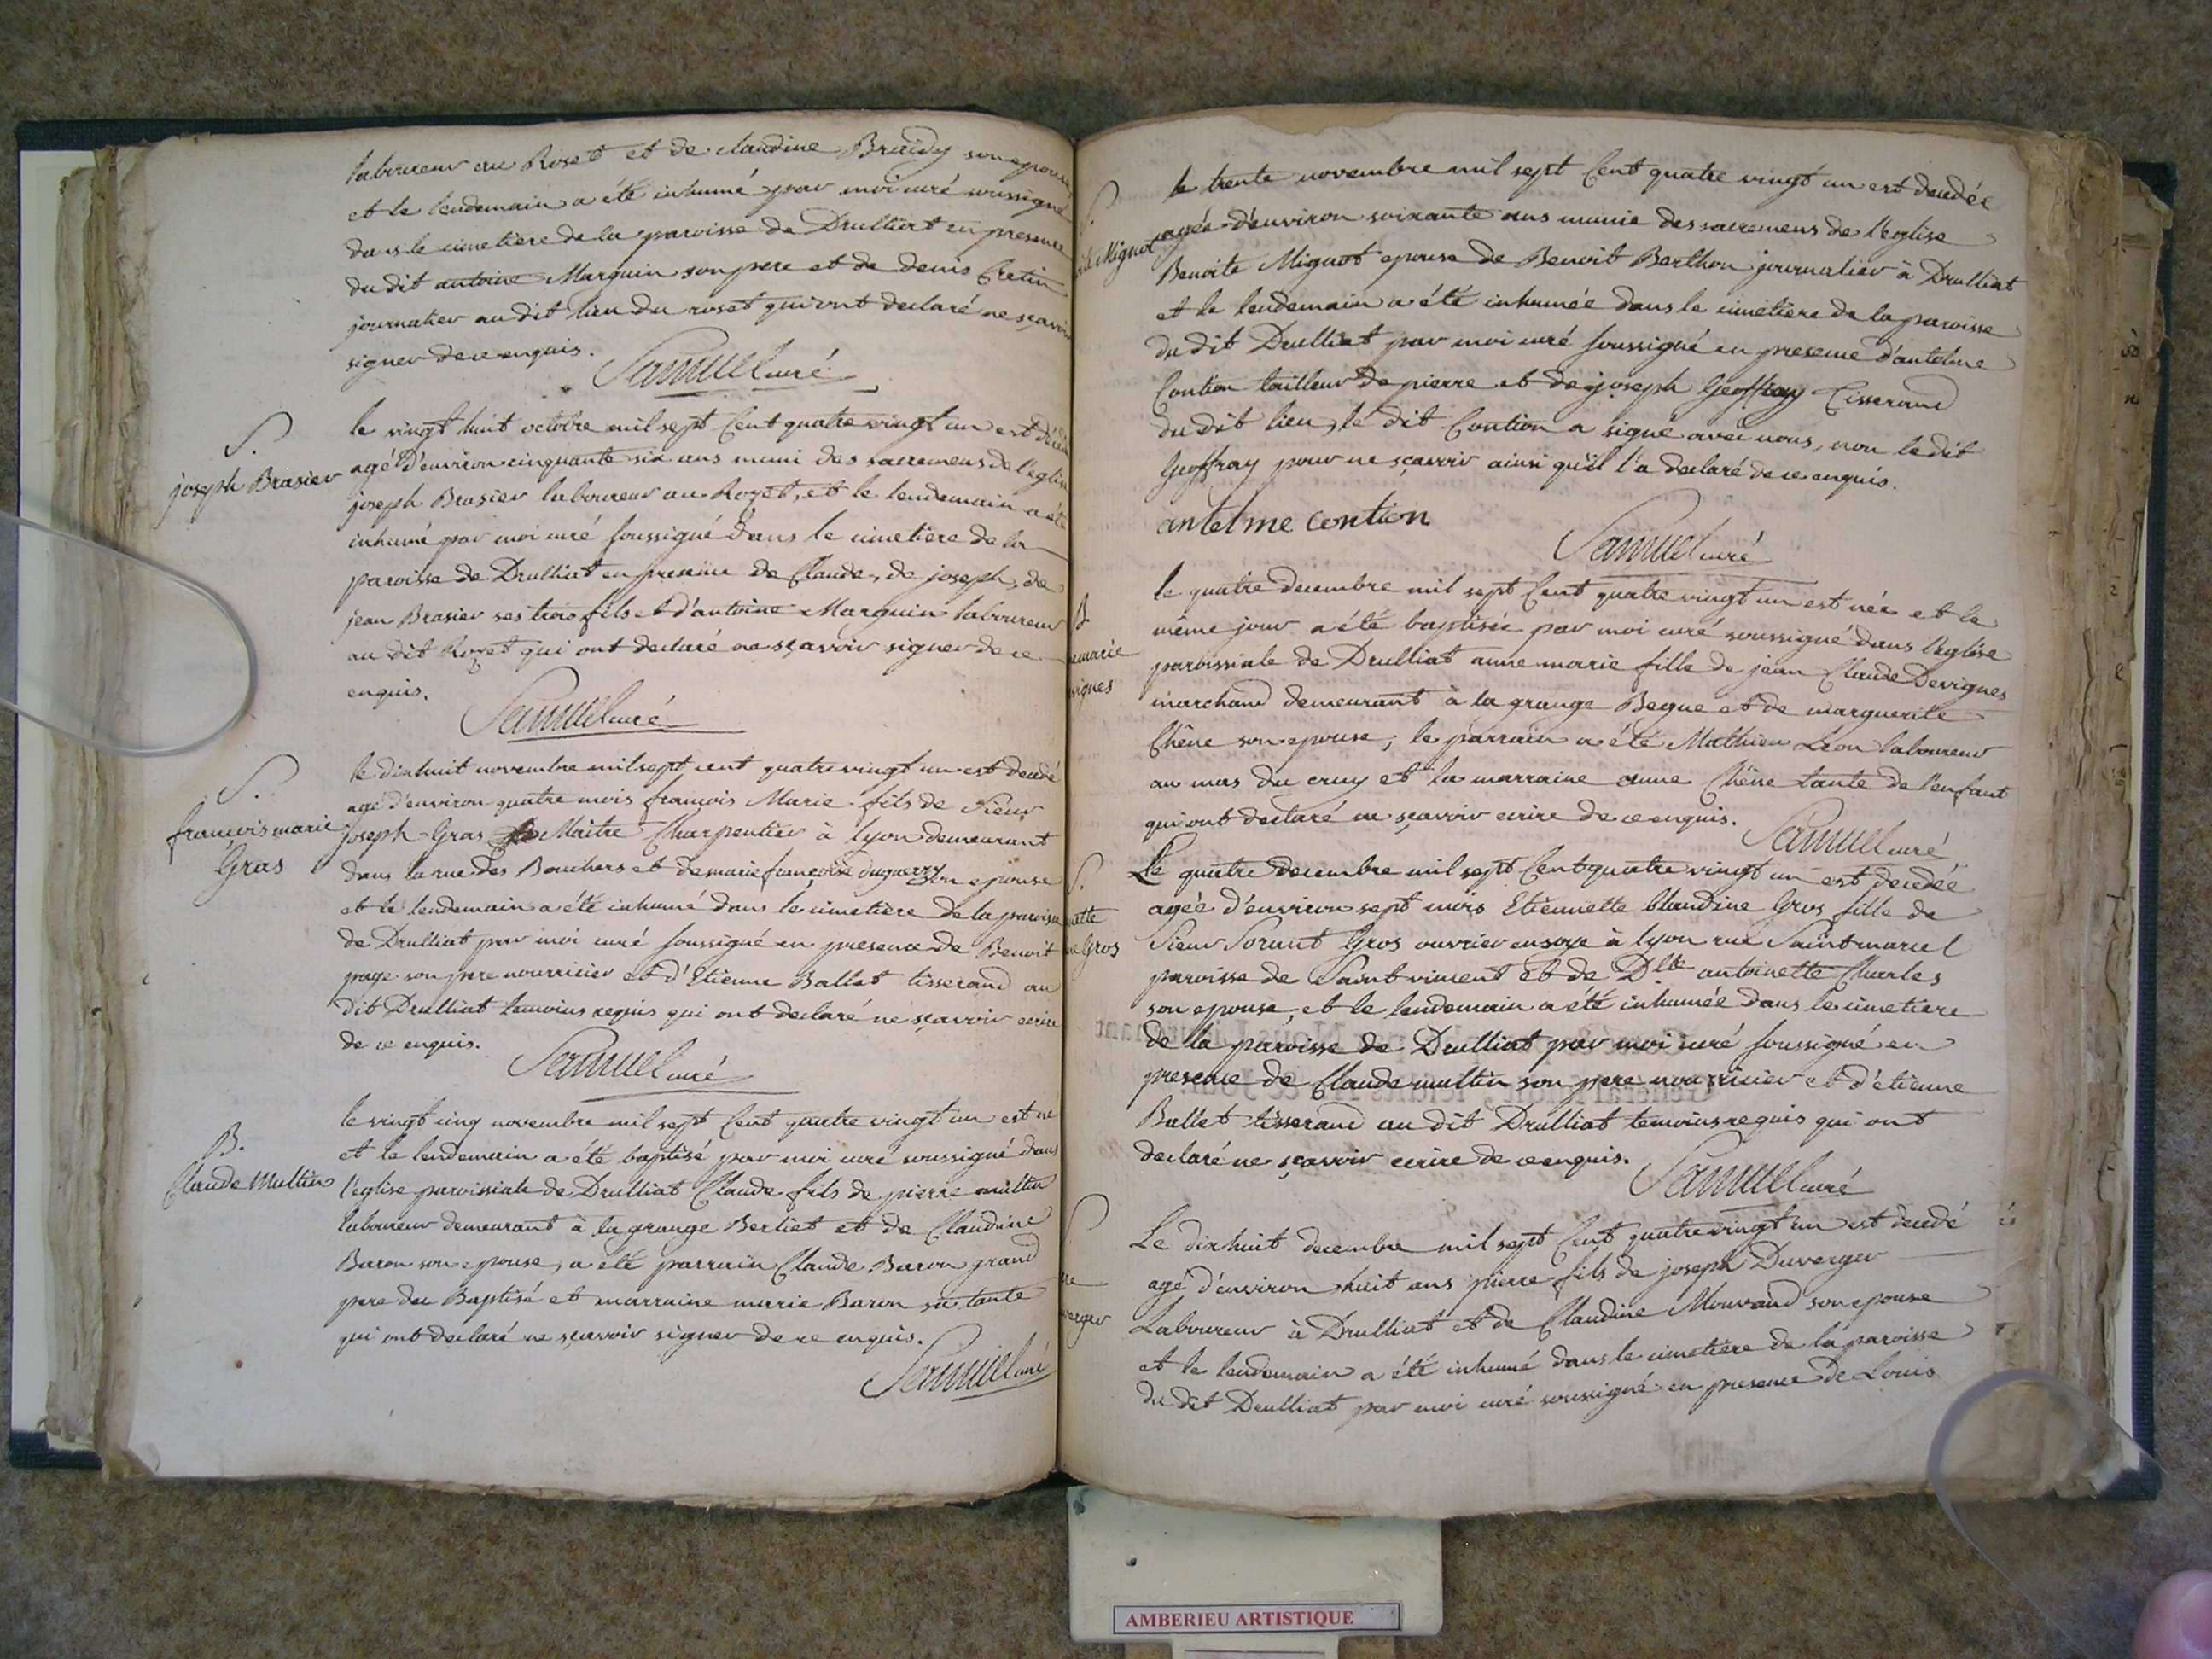 laboureur au Roset et de claudine Braidy son epouse
et le lendemain a été inhumé par moi curé soussigné
dans le cimetière de la paroisse de Drulliat en presence
du dit antoine Marguin son pere et de denis Cretin
journalier au dit lieu du roset qui ont declaré ne sçavoir
signer de ce enquis.
Samuel curé
S.
joseph Brasier
le vingt huit octobre mil sept Cent quatre vingt un est décédé
agé d'environ cinquante six ans muni des sacremens de l'eglise
joseph Brasier laboureur au Rozet, et le lendemain a été
inhumé par moi curé soussigné dans le cimetiere de la
paroisse de Drulliat en presence de Claude, de joseph, de
jean Brasier ses trois fils et d'antoine Marguin laboureur
au dit Rozet qui ont declaré ne sçavoir signer de ce
enquis.
Samuel curé
S.
francois marie
Gras
le dixhuit novembre mil sept cent quatre vingt un est decedé
agé d'environ quatre mois francois Marie fils de Sieur
Joseph Gras Maitre Charpentier à lyon demeurant
dans la rue des Bouchers et de marie francoise duguerry son epouse
et le lendemain a été inhumé dans le cimetière de la paroisse
de Drulliat par moi curé soussigné en presence de Benoit
page son pere nourricier et d'Etienne Ballet tisserand au
dit Drulliat temoins requis qui ont declaré ne sçavoir ecrire
de ce enquis.
Samuel curé
B.
Claude Multin
le vingt cinq novembre mil sept Cent quatre vingt un est né
et le lendemain a été baptisé par moi curé soussigné dans
l'eglise paroissiale de Drulliat Claude fils de pierre multin
laboureur demeurant à la grange Berliet et de Claudine
Baron son epouse, a été parrain Claude Baron grand
pere du Baptisé et marraine marie Baron sa tante
qui ont declaré ne sçavoir signer de ce enquis.
Samuel curé
S.
Mignot
le trente novembre mil sept Cent quatre vingt un est decedée
agée d'environ soixante ans munie des sacremens de l'eglise
Benoite Mignot epouse de Benoit Berthon journalier à Drulliat
et le lendemain a été inhumée dans le cimetiere de la paroisse
du dit Drulliat par moi curé soussigné en presence d'antelme
Contion tailleur de pierre et de joseph Geoffray Tisserand
du dit lieu, le dit Contion a signé avec nous, non le dit
Geoffray pour ne sçavoir ainsi qu'il l'a declaré de ce enquis.
antelme contion
Samuel curé
B
marie
vignes
le quatre decembre mil sept Cent quatre vingt un est née et le
même jour a été baptisée par moi curé soussigné dans l'eglise
paroissiale de Drulliat anne marie fille de jean Claude Devignes
marchand demeurant à la grange Begue et de marguerite
Chêne son epouse; le parrain a été Mathieu Léon laboureur
au mas du cruy et la marraine anne Chêne tante de l'enfant
qui ont declaré ne sçavoir ecrire de ce enquis.
Samuel curé
S.
nette
ne Gros
Le quatre decembre mil sept Cent quatre vingt un est decedée
agée d'environ sept mois Etiennette blandine Gros fille de
Sieur Gros ouvrier en soye à lyon rue Saint marcel
paroisse de Saint vincent et de Dlle antoinette Charles
son epouse, et le lendemain a été inhumée dans le cimetiere
de la paroisse de Drulliat par moi curé soussigné en
presence de Claude multin son pere nourricier et d'etienne
Ballet tisserand au dit Drulliat temoins requis qui ont
declaré ne sçavoir ecrire de ce enquis.
Samuel curé
S
re
verger
Le dixhuit decembre mil sept Cent quatre vingt un est decedé
agé d'environ huit ans pierre fils de joseph Duverger
Laboureur à Drulliat et de Claudine Mouraud son epouse
et le lendemain a été inhumé dans le cimetière de la paroisse
du dit Drulliat par moi curé soussigné en presence de Louis
AMBERIEU ARTISTIQUE